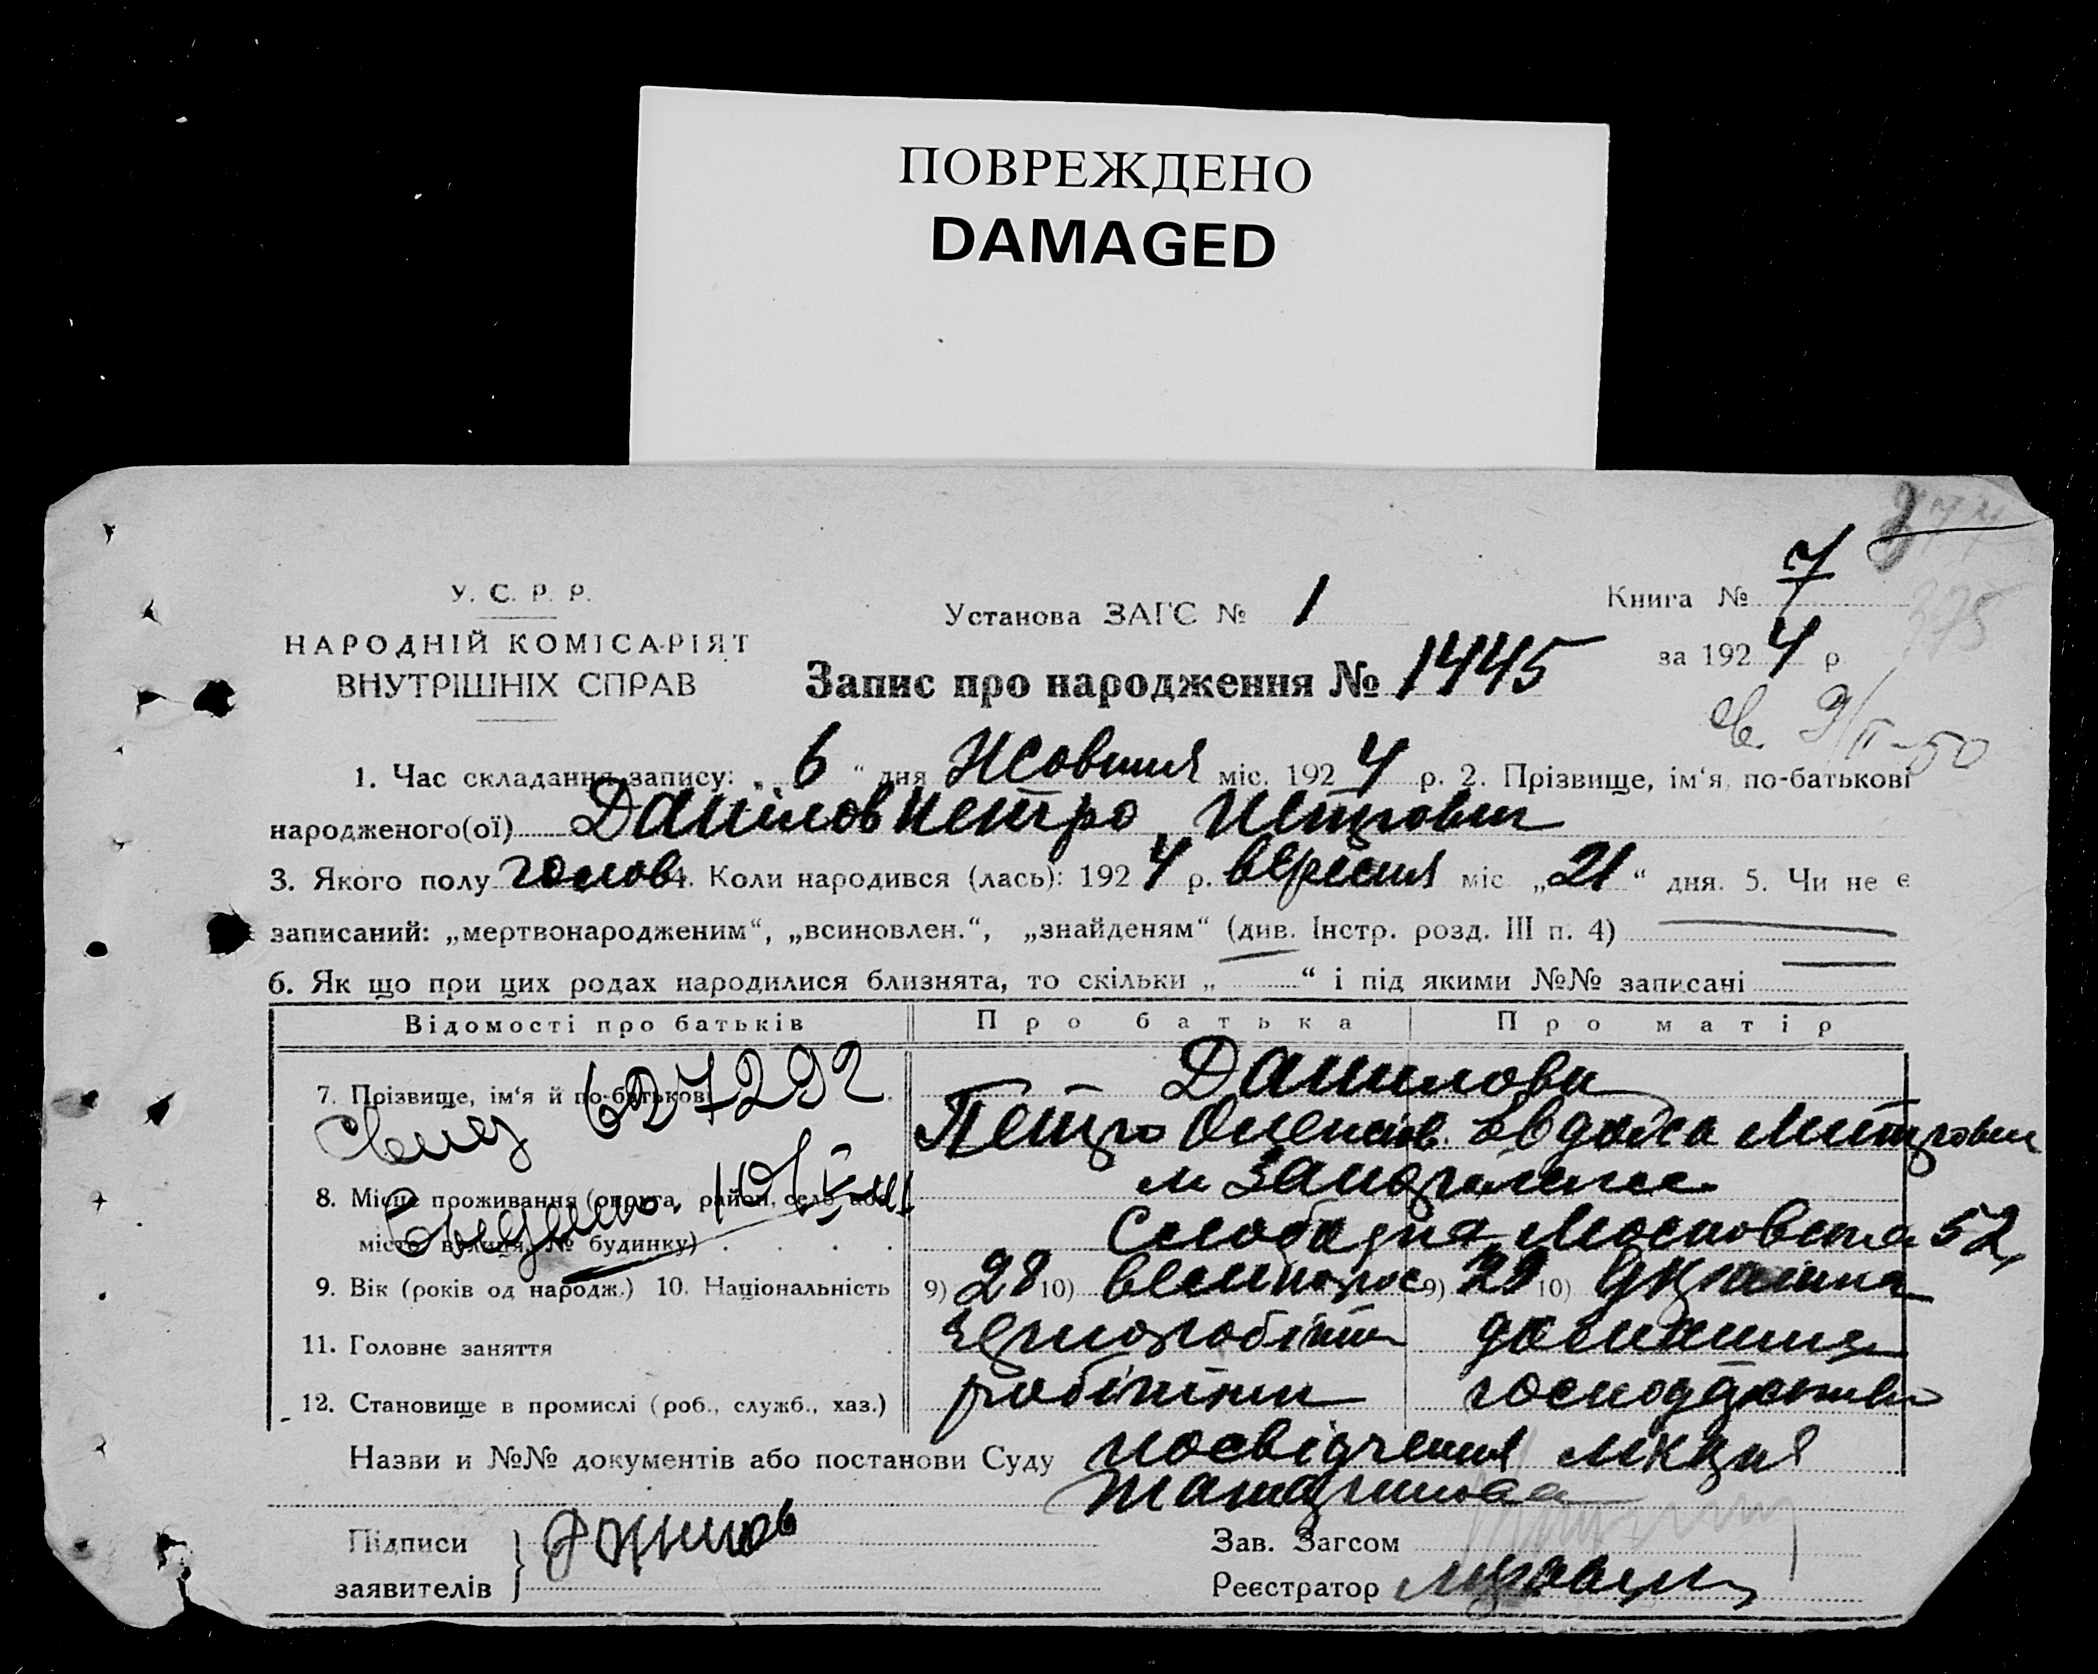 ПОВРЕЖДЕНО
DAMAGED
У. С. Р. Р.
НАРОДНІЙ КОМІСАРІЯТ
ВНУТРІШНІХ СПРАВ
Установа ЗАГС № 1
Книга № 7
за 1924 р
375
Запис про народження № 1445
св. 9/II-50
1. Час складання запису: „ 6 “ дня Жовтня міс. 1924 р. 2. Прізвище, ім'я, по-батькові
народженого(ої) Данілов Петро Петрович
3. Якого полу голов 4. Коли народився (лась): 1924 р. вересня міс „21“ дня. 5. Чи не є
записаний: „мертвонародженим“, „всиновлен.“, „знайденям“ (див. Інстр. розд. III п. 4)
6. Як що при цих родах народилися близнята, то скільки „ “ і під якими №№ записані
Відомості про батьків Про батька Про матір
7. Прізвище, ім'я й по-батькові Данилови
627292
Петро Олексіїв. Євдокія Митрович
8. Місце проживання (округа, район, село або м Запоріжже
місто, вулиця, № будинку) Слободка Московська 52
9. Вік (років од народж.) 10. Національність 9) 28 10) великорос 9) 29 10) Українка
11. Головне заняття чорноробітн домашнє
12. Становище в промислі (роб., служб., хаз.) робітник господарство
Назви и №№ документів або постанови Суду посвідчення лікаря
Підписи
заявителів
Зав. Загсом
Реєстратор